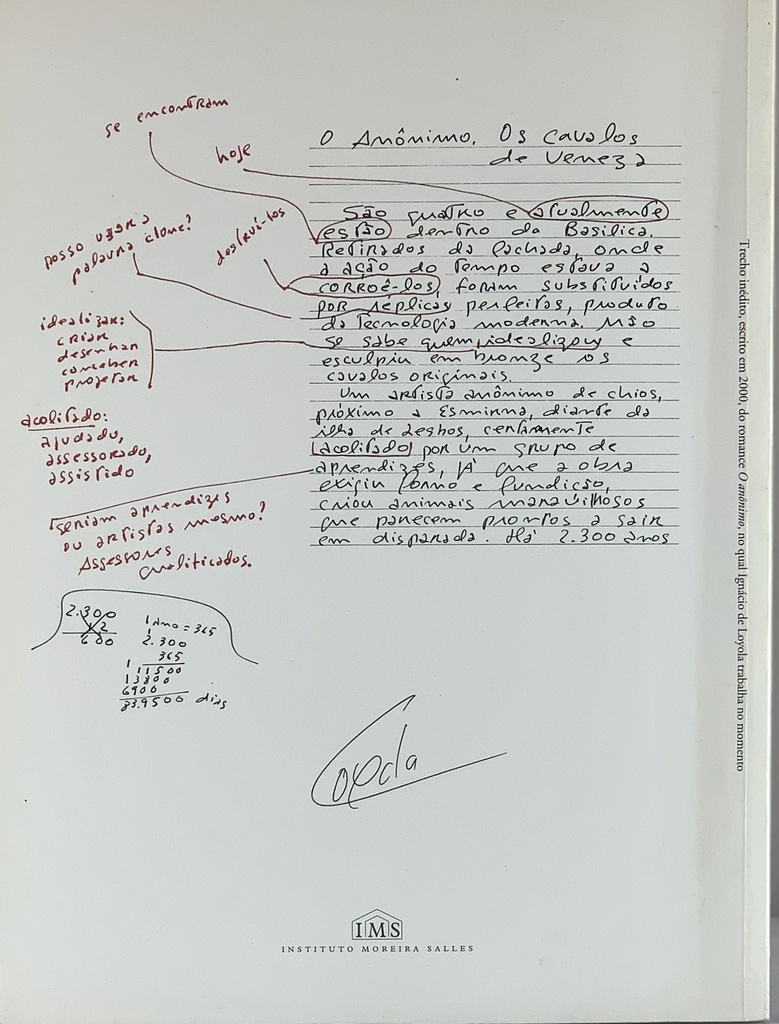 se encontram
hoje
posso usar a
palavra clone?
destruí-los
idealizar:
criar
desenhar
conceber
projetar
acolitado:
ajudado,
assessorado,
assistido
seriam aprendizes
ou artistas mesmo?
Assessores
qualificados.
2.300
12
600
1 ano = 365
2.300
365
11500
13800
6900
839.500 dias
O Anônimo. Os cavalos
de Veneza
São quatro e atualmente
estão dentro da Basílica.
Retirados da fachada, onde
a ação do tempo estava a
corroê-los, foram substituídos
por réplicas perfeitas, produto
da tecnologia moderna. Não
se sabe quem idealizou e
esculpiu em bronze os
cavalos originais.
Um artista anônimo de Chios,
próximo a Esmirna, diante da
ilha de Lesbos, certamente
acolitado por um grupo de
aprendizes, já que a obra
exigiu forno e fundição,
criou animais maravilhosos
que parecem prontos a sair
em disparada. Há 2.300 anos
IMS
INSTITUTO MOREIRA SALLES
Trecho inédito, escrito em 2000, do romance O anônimo, no qual Ignácio de Loyola trabalha no momento